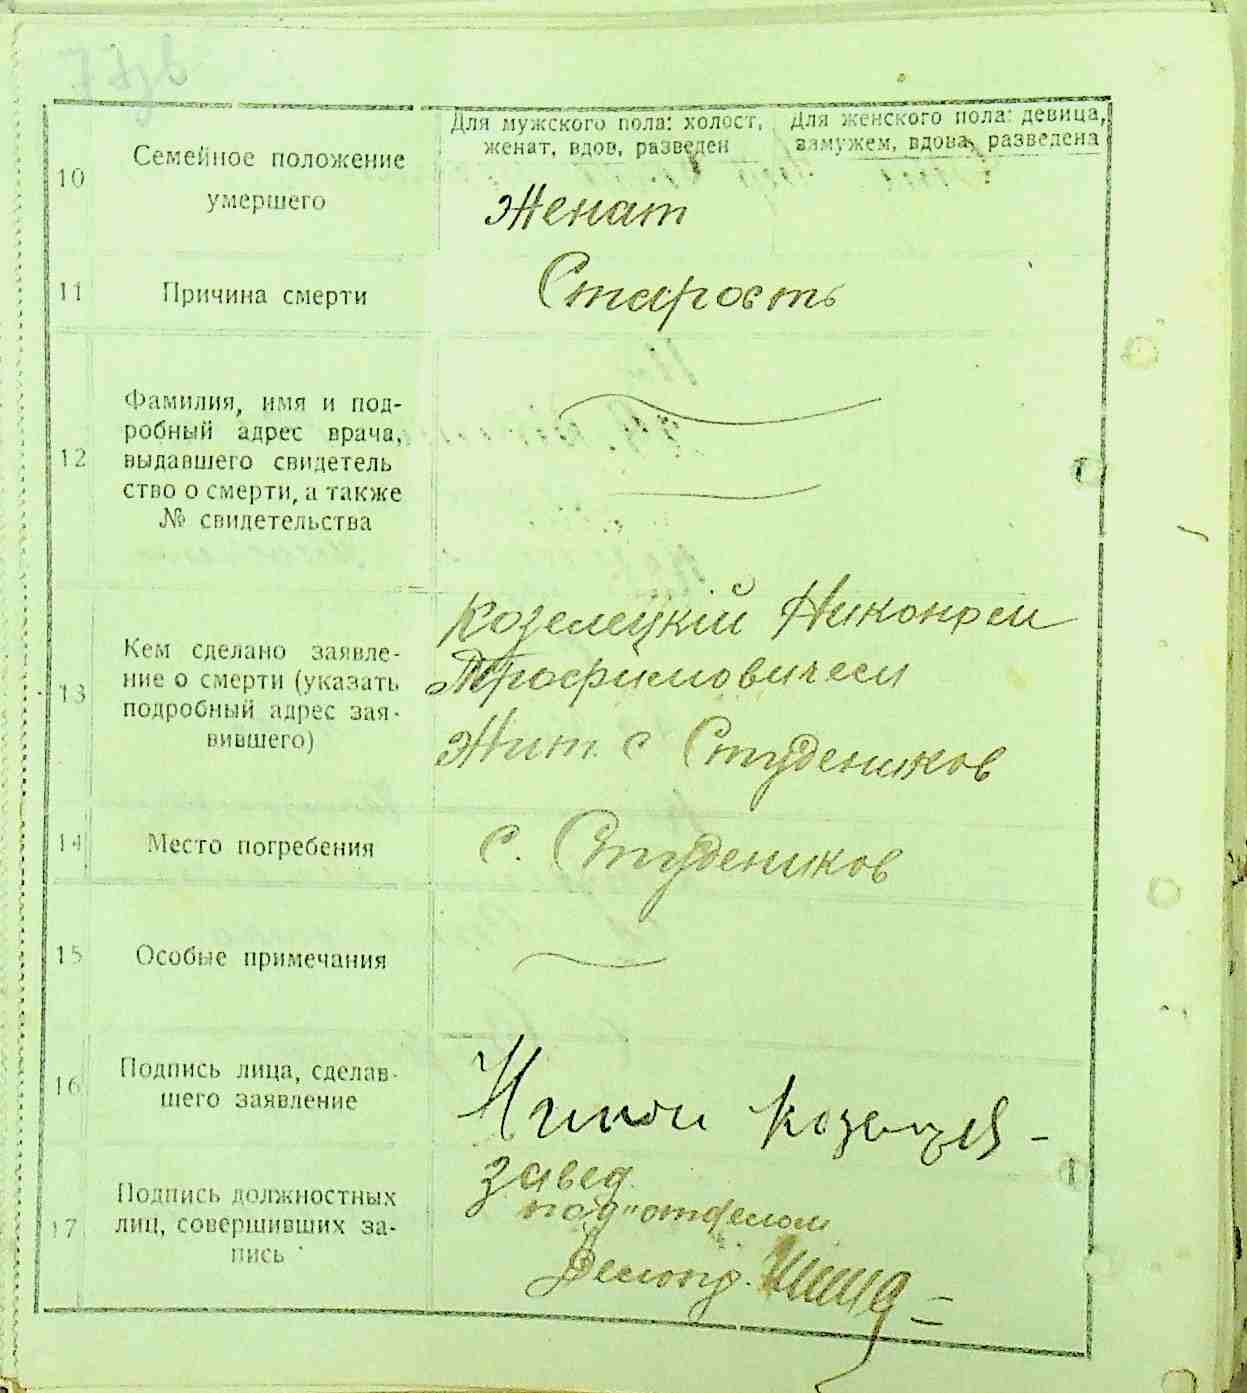 Для мужского пола: холост, женат, вдов, разведен
Для женского пола: девица, замужем, вдова, разведена
10 Семейное положение умершего
Женат
11 Причина смерти
Старость
12 Фамилия, имя и под-
робный адрес врача,
выдавшего свидетель
ство о смерти, а также
№ свидетельства
13 Кем сделано заявле-
ние о смерти (указать
подробный адрес зая-
вившего)
Козелецкий Никонрем
Трофимовичем
Жит. с Студеников
14 Место погребения
с. Студеников
15 Особые примечания
16 Подпись лица, сделав-
шего заявление
Никон
17 Подпись должностных
лиц, совершивших за-
пись
Завед.
под"отделом